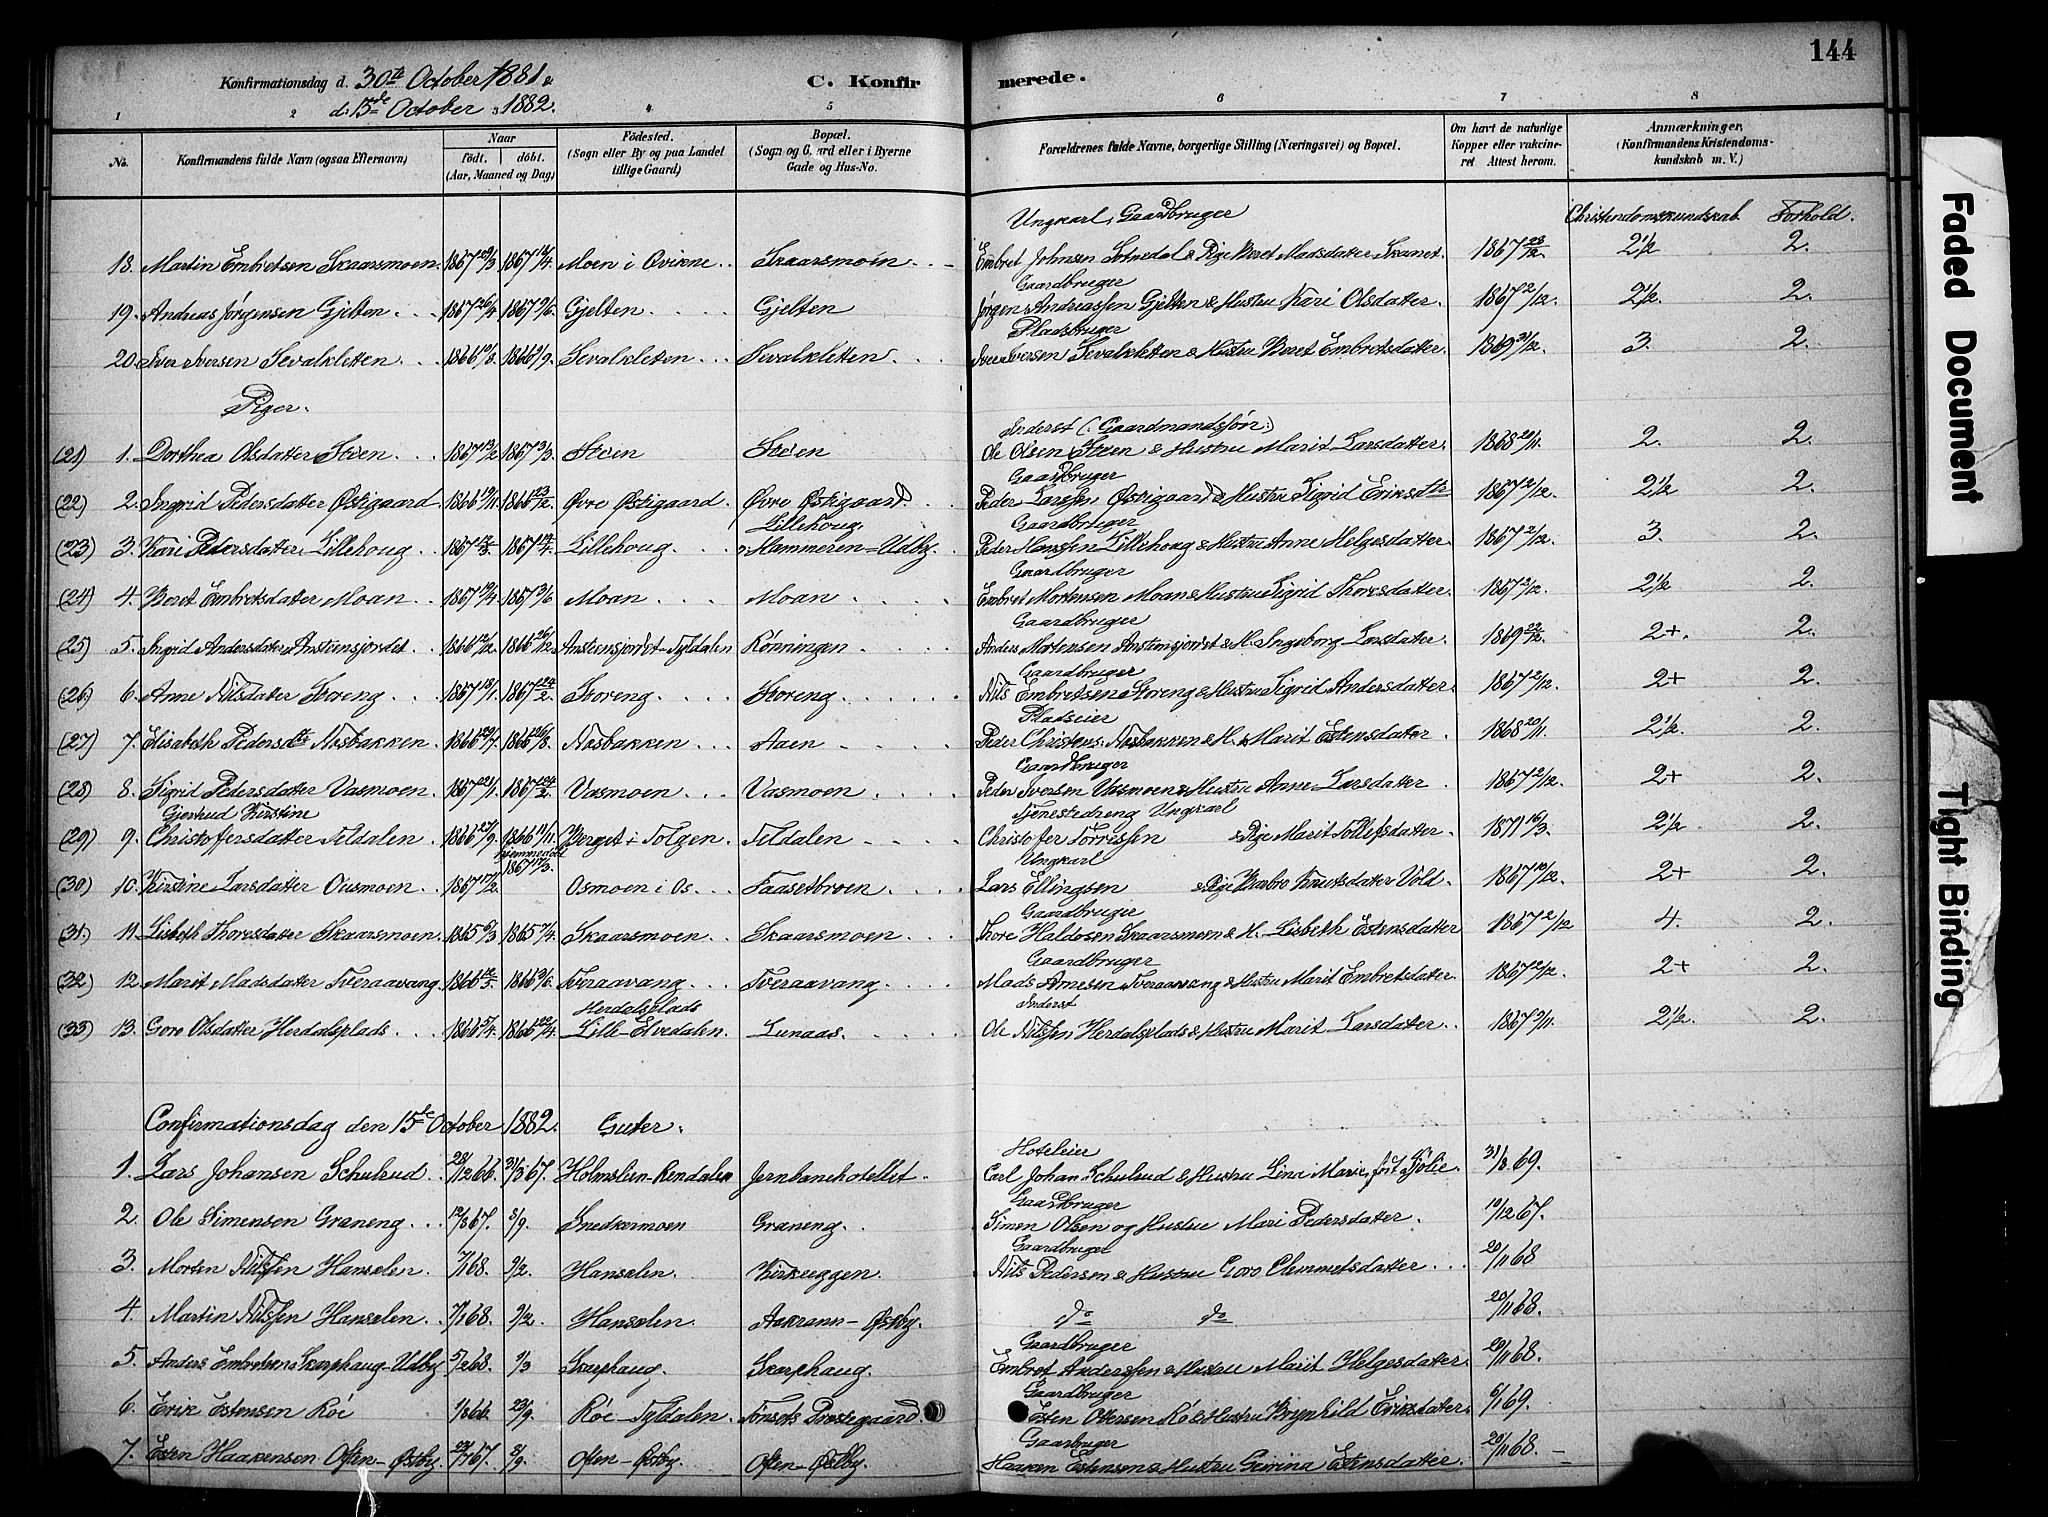 144
Konfirmationsdag d. 30te October 1881 &
d. 15de October 1882.
C. Konfirmerede.
1 2 4 5 6 7 8
No. Konfirmandens fulde Navn (ogsaa Efternavn) Naar födt. döbt. (Aar, Maaned og Dag) Födested. (Sogn eller By og paa Landet tillige Gaard) Bopæl. (Sogn og Gaard eller i Byerne Gade og Hus-No. Forældrenes fulde Navne, borgerlige Stilling (Næringsvei) og Bopæl. Om havt de naturlige Kopper eller vakcineret Attest herom. Anmærkninger, (Konfirmandens Kristendomskundskab m. V.)
Ungkarl, Gaardbruger Christendomskundskab. Forhold.
18. Martin Embretsen Skaarsmoen. 1867 1867 Moen i Qvikne Skaarsmoen Embret Johnsen & Pige Beret Madsdatter 1867 23/12. 2 1/2 2.
Gaardbruger
19. Andreas Jørgensen Gjelten 1867 26/4 1867 9/6. Gjelten Gjelten Jørgen Andreassen Gjelten & Hustru Kari Olsdatter. 1867 2/12. 2 1/2. 2.
Pladsbruger
20. Iver Iversen Sevalkletten 1866 1866 Sevalkletten Sevalkletten Iver Iversen Sevalkletten & Hustru Beret Embretsdatter. 1869 31/12. 3. 2.
Piger.
Inderst (: Gaardmandssøn :)
(21) 1. Dorthea Olsdatter Steen 1867 13/2 1867 3/3. Steen Steen Ole Olsen Steen & Hustru Marit Larsdatter. 1868 20/11. 2. 2.
Gaardbruger
(22) 2. Ingrid Pedersdatter Østigaard 1866 19/11. 1866 23/12. Øvre Østigaard. Øvre Østigaard. Peder Larssen Østigaard & Hustru Sigrid Eriksdtr 1867 2/12. 2 1/2 2.
Lillehoug. Gaardbruger
(23) 3. Kari Pedersdatter Lillehoug 1867 1867 Lillehoug Hammeren-Udby Peder Hanssen Lillehoug & Hustru Anne Helgesdatter. 1867 2/12. 3. 2.
Gaardbruger
(24) 4. Beret Embretsdatter Moan 1867 1867 Moan Moan Embret Mortensen Moan & Hustru Sigrid Thoresdatter. 1867 2/12. 2 1/2 2.
Gaardbruger
(25) 5. Ingrid Andersdatter Anstensjordet 1866 1866 26/12. Anstensjordet-Tyldalen Rønningen Anders Mortensen Anstensjordet & H. Ingeborg Larsdatter. 1869 22/12. 2+. 2.
Gaardbruger
(26) 6. Anne Nilsdatter Storeng 1867 18/1. 1867 24/2. Storeng Storeng Nils Embretsen Storeng & Hustru Sigrid Andersdatter. 1867 2/12. 2+ 2.
Pladseier
(27) 7. Elisabeth Pedersdtr Næsbakken. 1866 29/7. 1866 26/8. Næsbakken Aaen Peder Christens. Næsbakken & H. Marit Estensdatter. 1868 20/11. 2 1/2. 2.
Gaardbruger
(28) 8. Sigrid Pedersdatter Vasmoen 1867 21/1. 1867 24/2. Vasmoen Vasmoen Peder Iversen Vasmoen & Hustru Anne Larsdatter 1867 2/12. 2+ 2.
Gjertrud Kirstine Tjenestedreng Ungkarl
(29) 9. Christoffersdatter Teldalen 1866 27/9. 1866 11/11. Berget i Tolgen Teldalen Christofer Torresen & Pige Marit Tollefsdatter. 1871 16/3. 2 1/2. 2.
hjemmedøbt 1867 17/3. Ungkarl
(30) 10. Kirstine Larsdatter Ousmoen 1867 17/2. Osmoen i Os Faasetbroen Lars Ellingsen & Pige Barbro Knutsdatter Vold. 1867 19/12. 2+ 2.
Gaardbruger
(31) 11. Lisbeth Thoresdatter Skaarsmoen. 1865 6/3 1865 7/4. Skaarsmoen Skaarsmoen Thore Haldosen Skaarsmoen & H. Lisbeth Estensdatter 1867 2/12 4. 2.
Gaardbruger
(32) 12. Marit Madsdatter Tveraavang. 1866 1866 3/6. Tveraavang Tveraavang Mads Arnesen Tveraavang & Hustru Marit Embretsdatter. 1867 2/12. 2+ 2.
Herdalsplads Inderst
(33) 13. Goro Olsdatter Herdalsplads 1866 5/4. 1866 22/4. Lille-Elvedalen. Lunaas. Ole Nilssen Herdalsplads & Hustru Marit Larsdatter 1867 2/11. 2 1/2. 2.
Confirmationsdag den 15de October 1882. Guter.
Hoteleier
1. Lars Johansen Schulrud 28/12 66. 31/3 67. Holmsleen-Rendalen Jernbanehotellet. Carl Johan Schulrud & Hustru Lina Marie, født Fjölie. 31/8 69.
Gaardbruger
2. Ole Simensen Graneng 12/8 67. 8/9. Snedkermoen Graneng. Simen Olsen og Hustru Mari Pedersdatter. 19/12 67.
Gaardbruger
3. Morten Nilssen Hanselen. 7/1 68. 9/2. Hanselen. Kirkeggen. Nils Pedersen & Hustru Goro Clemmetsdatter 20/11 68
4. Martin Nilssen Hanselen. 7/1 68. 9/2. Hanselen. Aakrann-Østby. do do 20/11 68.
Gaardbruger
5. Anders Embretsen Skarphaug-Udby. 5/2 68. 1/3 Skarphaug. Skarphaug. Embret Anderssen & Hustru Marit Helgesdatter. 20/11 68.
Gaardbruger
6. Erik Estensen Röe 1/8 66. 23/9. Röe-Tyldalen. Tönsets Prestegaard. Esten Ottersen Rö & Hustru Brynhild Eriksdatter. 6/1 69.
Gaarbruger
7. Esten Haakensen Often-Østby. 23/7 67. 8/9. Often-Østby. Often-Østby. Haaken Estensen & Hustru Guirina Estensdatter. 20/11 68.
Faded Document
Tight Binding